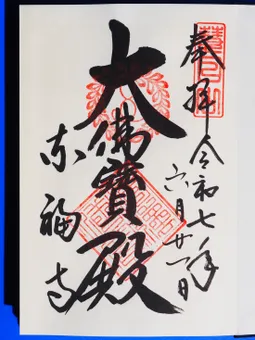 奉拝
令和七年
六月廿一日
大佛寶殿
東福寺